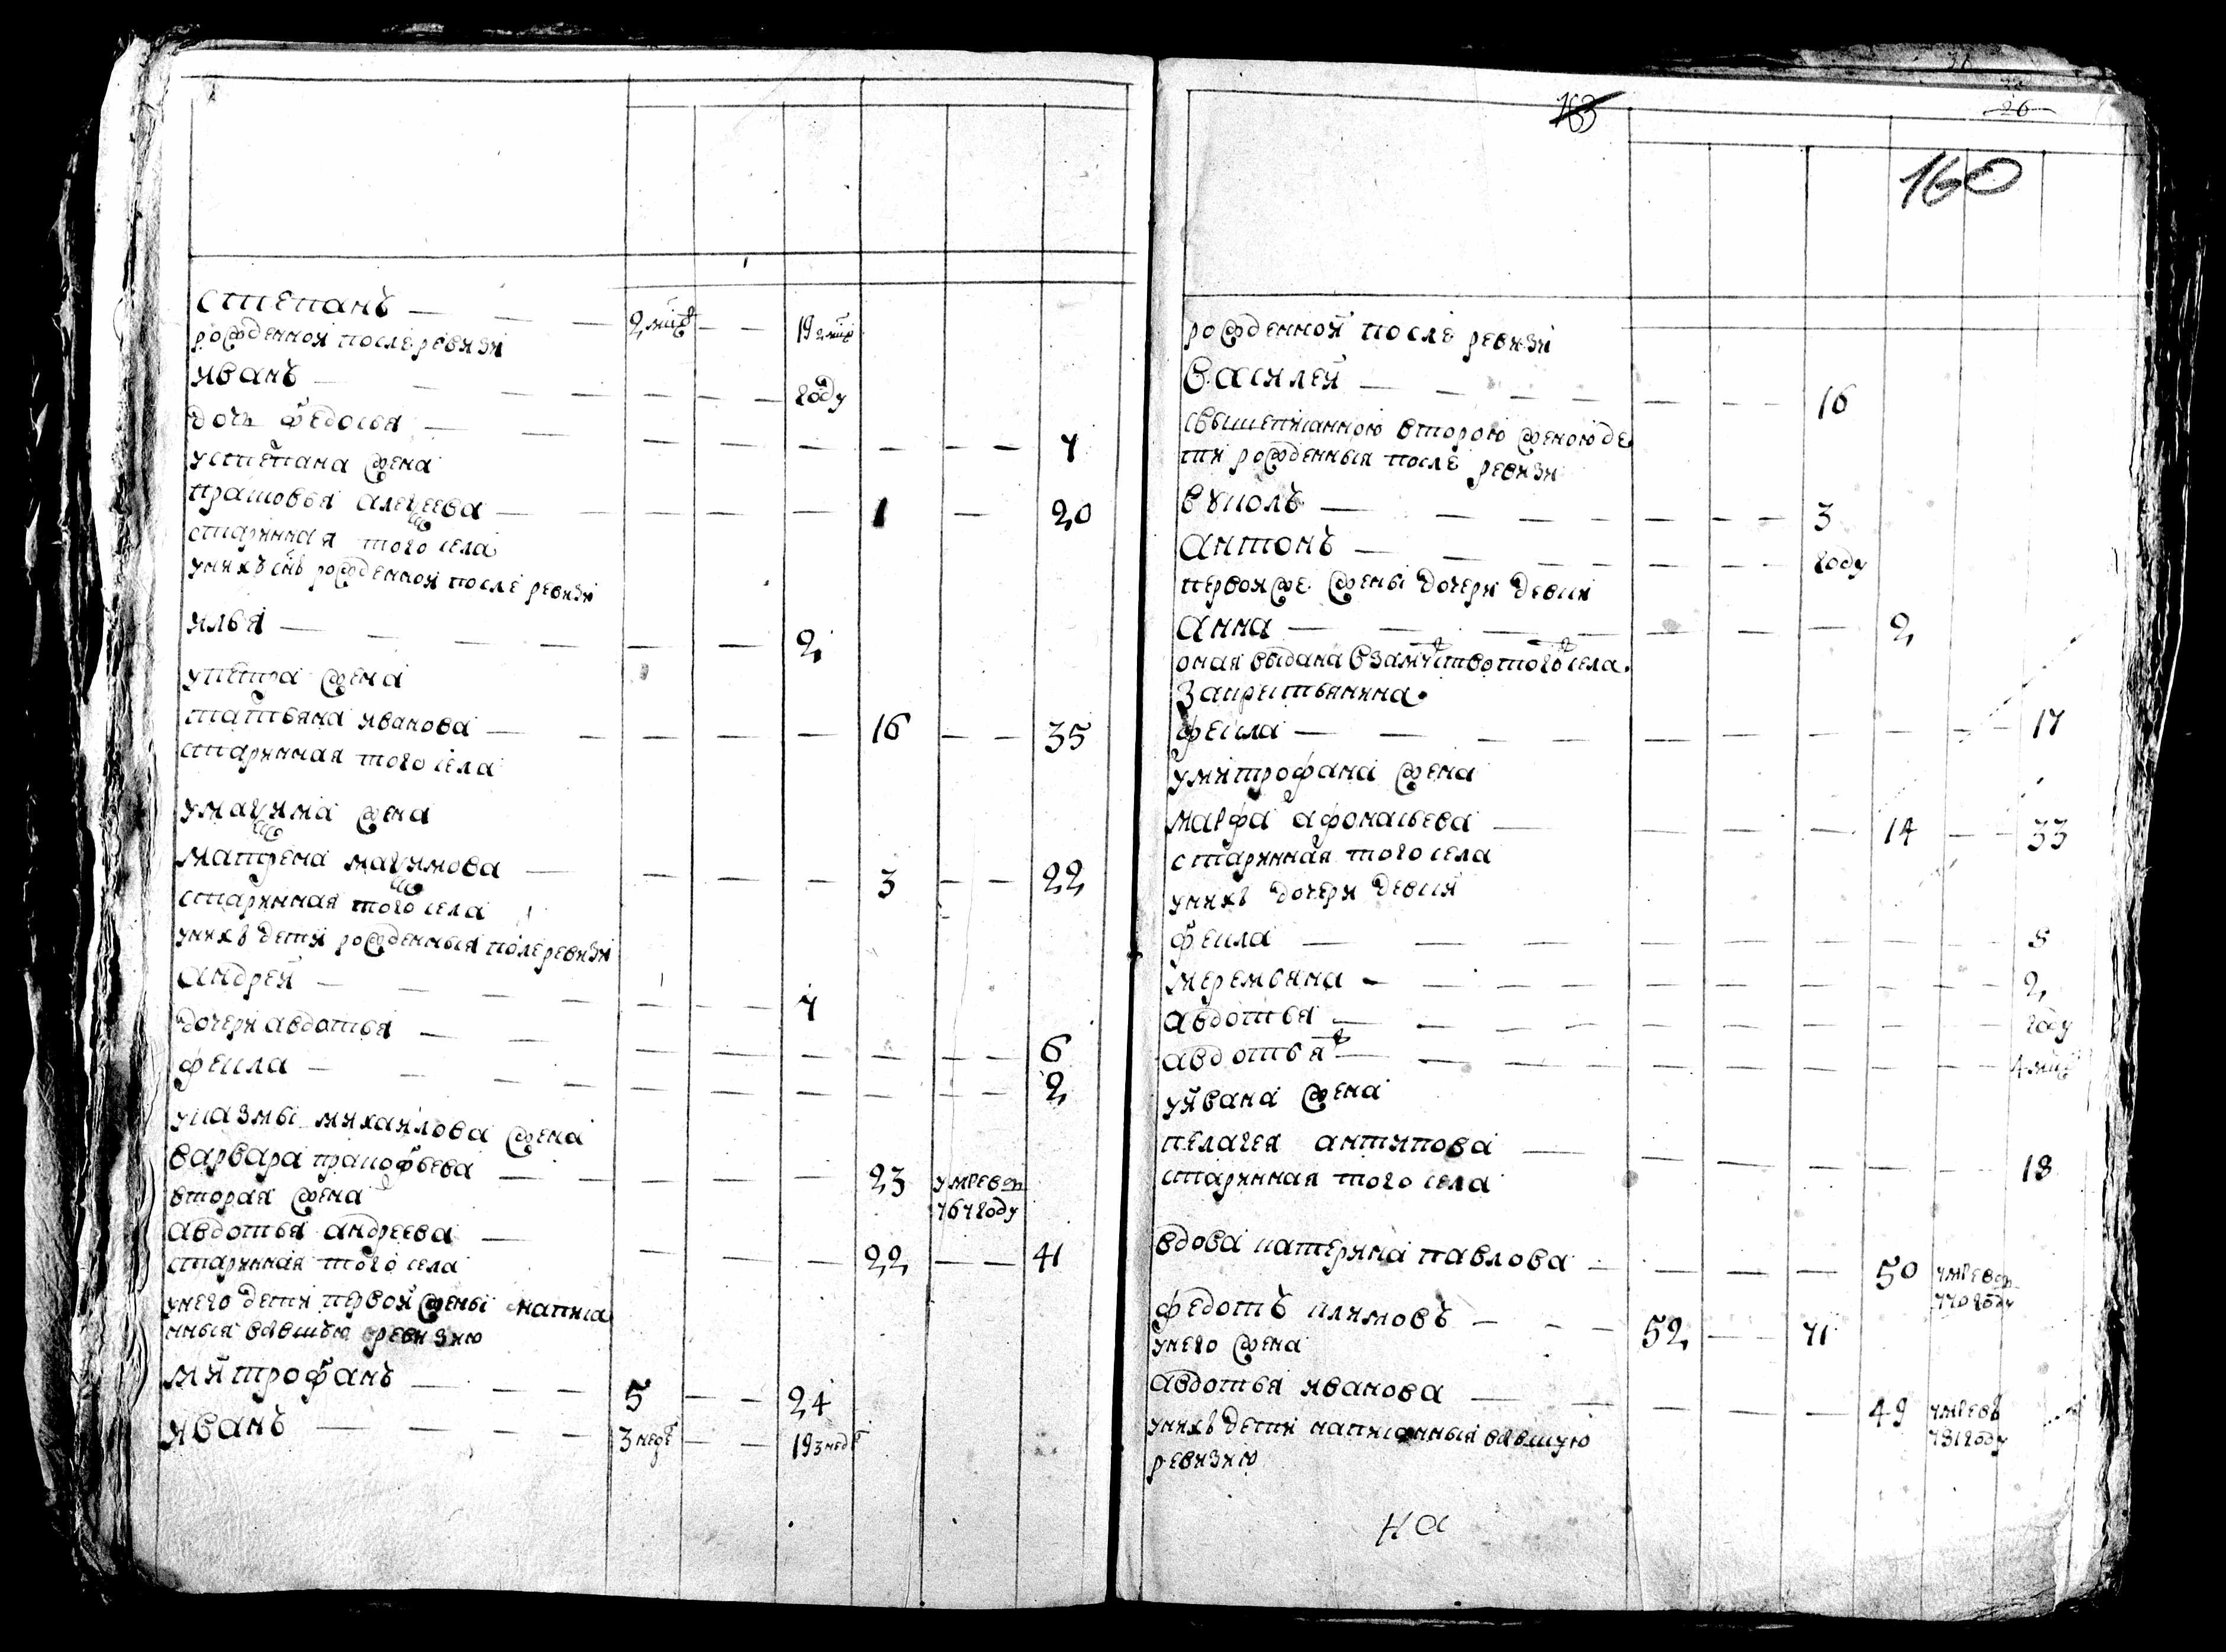 степанъ — — — 2 мцъ — — 19 2 мцъ
рожденной после ревизи
иванъ — — — — — — году
дочь федосья — — — — — — — — 7
устепана жена
прасковья алексеева — — — — — 1 — 20
старинная того села
унихъ снъ рожденной после ревизи
илья — — — — — — 2
упетра жена
татьяна иванова — — — — — 16 — — 35
старинная того села
умаѯима жена
матрена маѯимова — — — — 3 — — 22
старинная того села
унихъ дети рожденныя после ревизи
андрей — — — — — — 7
дочери авдотья — — — — — — — 6
фекла — — — — — — — — — 2
укозмы михаилова жена
варвара прокофьева — — — — 23 умре в
767 году
вторая жена
авдотья андреева — — — — 22 — — 41
старинная того села
унего дети первой жены написа
нныя вбывшую ревизию
митрофанъ — — — 5 — — 24
иванъ — — — — 3 неде — — 19 3 неде
163
26
160
рожденной после ревизи
василей — — — — — — — 16
свышеписанною второю женою де
ти рожденныя после ревизи
вуколъ — — — — — — — 3
антонъ — — — — — — — году
первой же жены дочери девки
анна — — — — — — — 2
оная выдана взамужство того села
за крестьянина
фекла — — — — — — — — — 17
умитрофана жена
марфа афонасьева — — — — 14 — — 33
старинная того села
унихъ дочери девки
фекла — — — — — — — — — 8
меремьяна — — — — — — — — 2
авдотья — — — — — — — — — году
авдотья — — — — — — — — — 4 мцъ
уивана жена
пелагея антипова — — — — — — — 18
старинная того села
вдова катерина павлова — — — — 50 умре в
770 году
федотъ климовъ — — — 52 — — 71
унего жена
авдотья иванова — — — — — 49 умре в
781 году
унихъ дети написанныя вбывшую
ревизию
на